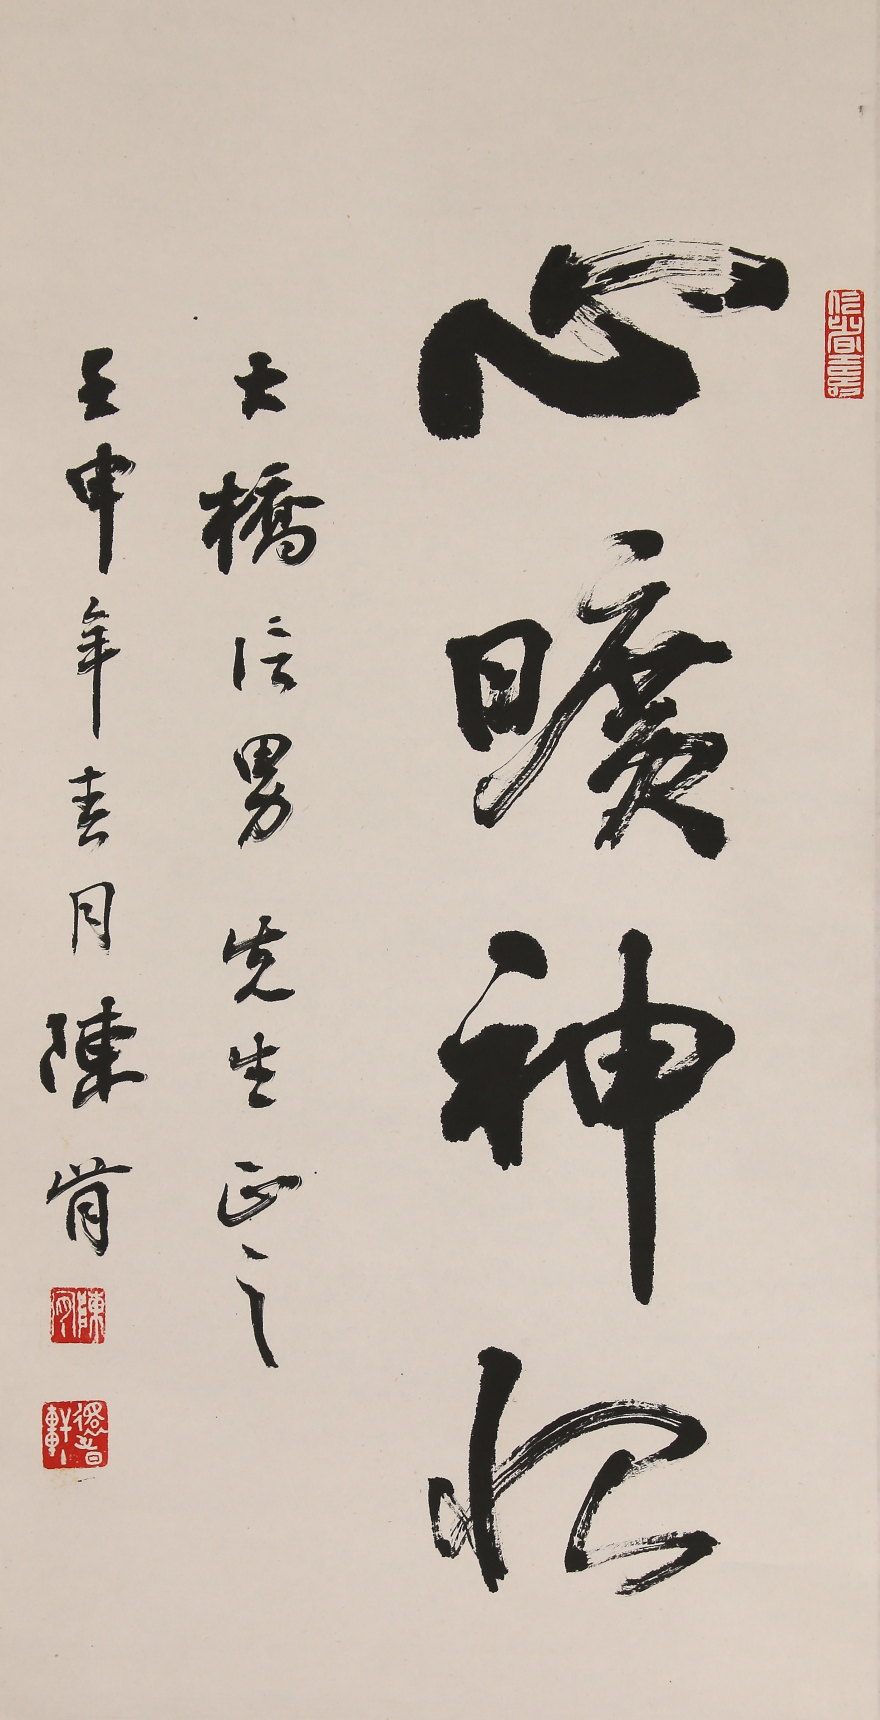 心曠神怡
大橋信男先生正之
壬申年春月陳肯
陳肯